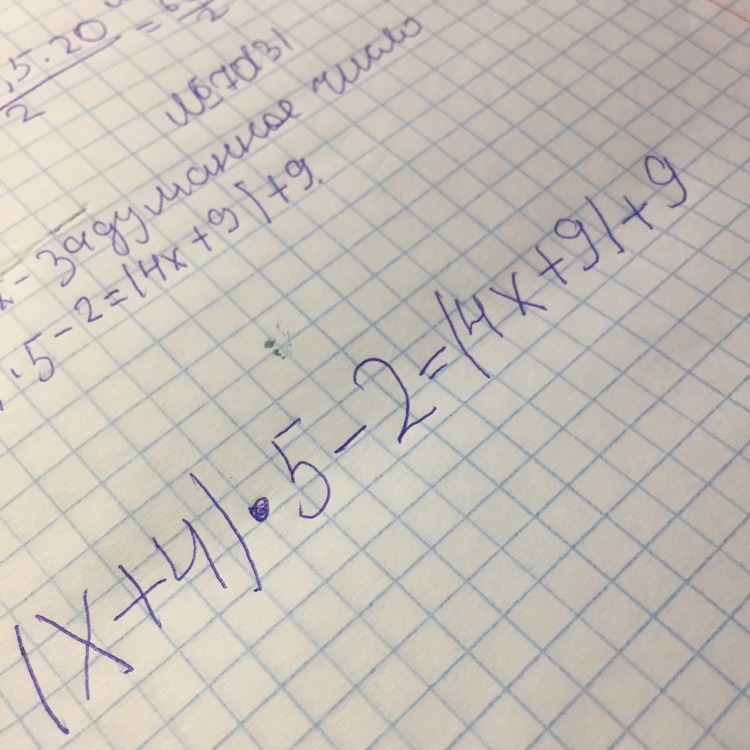 5·20 = 6
2 2
№570(3)
x - задуманное число
·5-2=(4x+9)+9.
(x+4)·5-2=(4x+9)+9